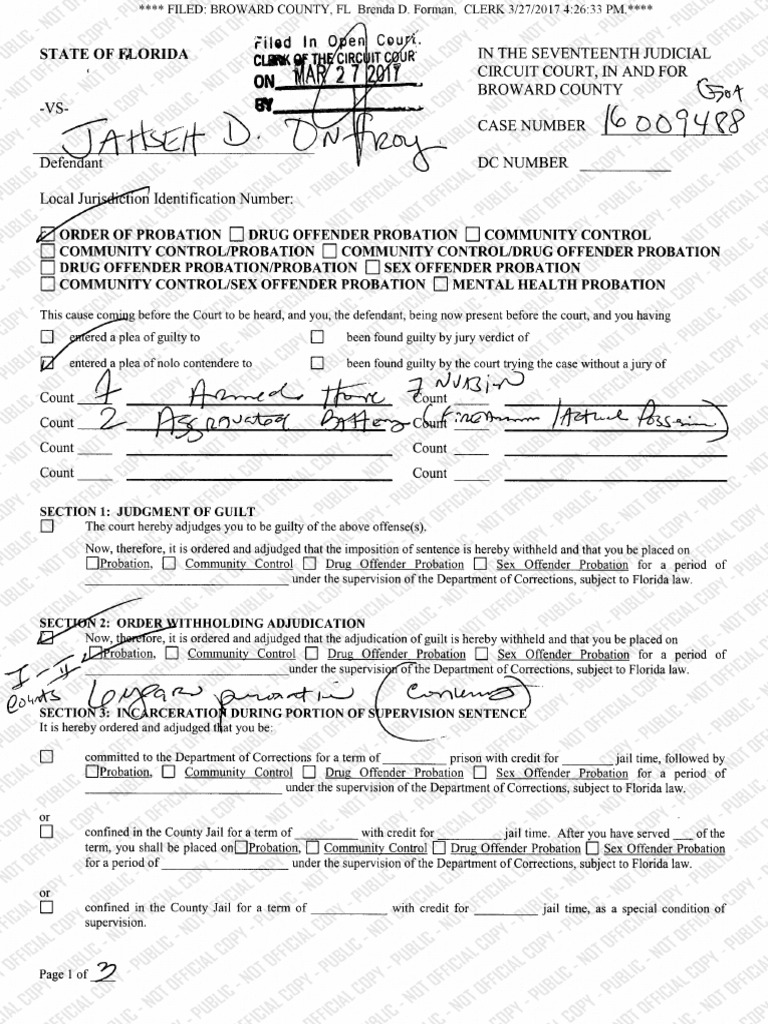 **** FILED: BROWARD COUNTY, FL Brenda D. Forman, CLERK 3/27/2017 4:26:33 PM.****
STATE OF FLORIDA
Filed In Open Court.
CLERK OF THE CIRCUIT COURT
ON MAR 27 2017
BY
IN THE SEVENTEENTH JUDICIAL
CIRCUIT COURT, IN AND FOR
BROWARD COUNTY
-VS-
JAHSEH D. Onffroy
CASE NUMBER 16009488
Defendant
DC NUMBER
Local Jurisdiction Identification Number:
ORDER OF PROBATION DRUG OFFENDER PROBATION COMMUNITY CONTROL
COMMUNITY CONTROL/PROBATION COMMUNITY CONTROL/DRUG OFFENDER PROBATION
DRUG OFFENDER PROBATION/PROBATION SEX OFFENDER PROBATION
COMMUNITY CONTROL/SEX OFFENDER PROBATION MENTAL HEALTH PROBATION
This cause coming before the Court to be heard, and you, the defendant, being now present before the court, and you having
entered a plea of guilty to been found guilty by jury verdict of
entered a plea of nolo contendere to been found guilty by the court trying the case without a jury of
Count 1 Armed Home Count Invasion
Count 2 Aggravated Battery Count (Firearm/Actual Possession)
Count Count
Count Count
SECTION 1: JUDGMENT OF GUILT
The court hereby adjudges you to be guilty of the above offense(s).
Now, therefore, it is ordered and adjudged that the imposition of sentence is hereby withheld and that you be placed on
Probation, Community Control Drug Offender Probation Sex Offender Probation for a period of
under the supervision of the Department of Corrections, subject to Florida law.
SECTION 2: ORDER WITHHOLDING ADJUDICATION
Now, therefore, it is ordered and adjudged that the adjudication of guilt is hereby withheld and that you be placed on
I - II Probation, Community Control Drug Offender Probation Sex Offender Probation for a period of
under the supervision of the Department of Corrections, subject to Florida law.
Counts 6 years probation
SECTION 3: INCARCERATION DURING PORTION OF SUPERVISION SENTENCE
It is hereby ordered and adjudged that you be:
committed to the Department of Corrections for a term of prison with credit for jail time, followed by
Probation, Community Control Drug Offender Probation Sex Offender Probation for a period of
under the supervision of the Department of Corrections, subject to Florida law.
or
confined in the County Jail for a term of with credit for jail time. After you have served of the
term, you shall be placed on Probation, Community Control Drug Offender Probation Sex Offender Probation
for a period of under the supervision of the Department of Corrections, subject to Florida law.
or
confined in the County Jail for a term of with credit for jail time, as a special condition of
supervision.
Page 1 of 3